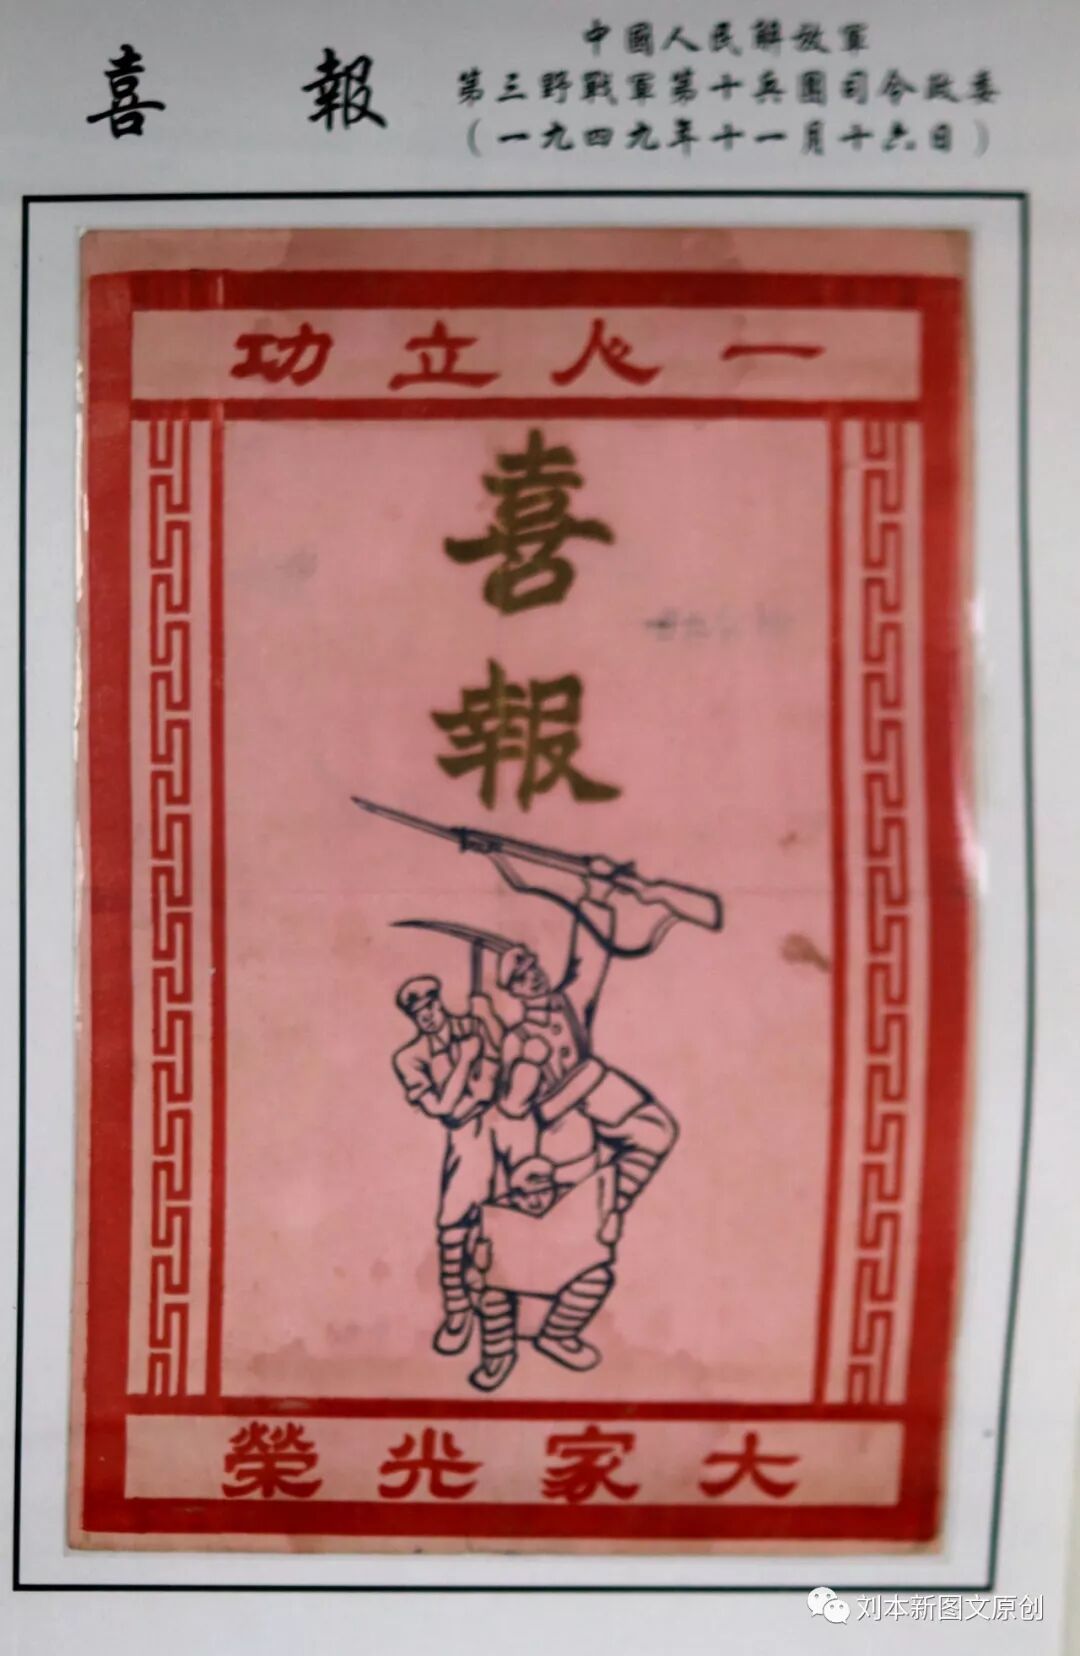 喜報
中國人民解放軍
第三野戰軍第十兵團司令政委
（一九四九年十一月十六日）
一人立功
喜
報
大家光榮
刘本新图文原创